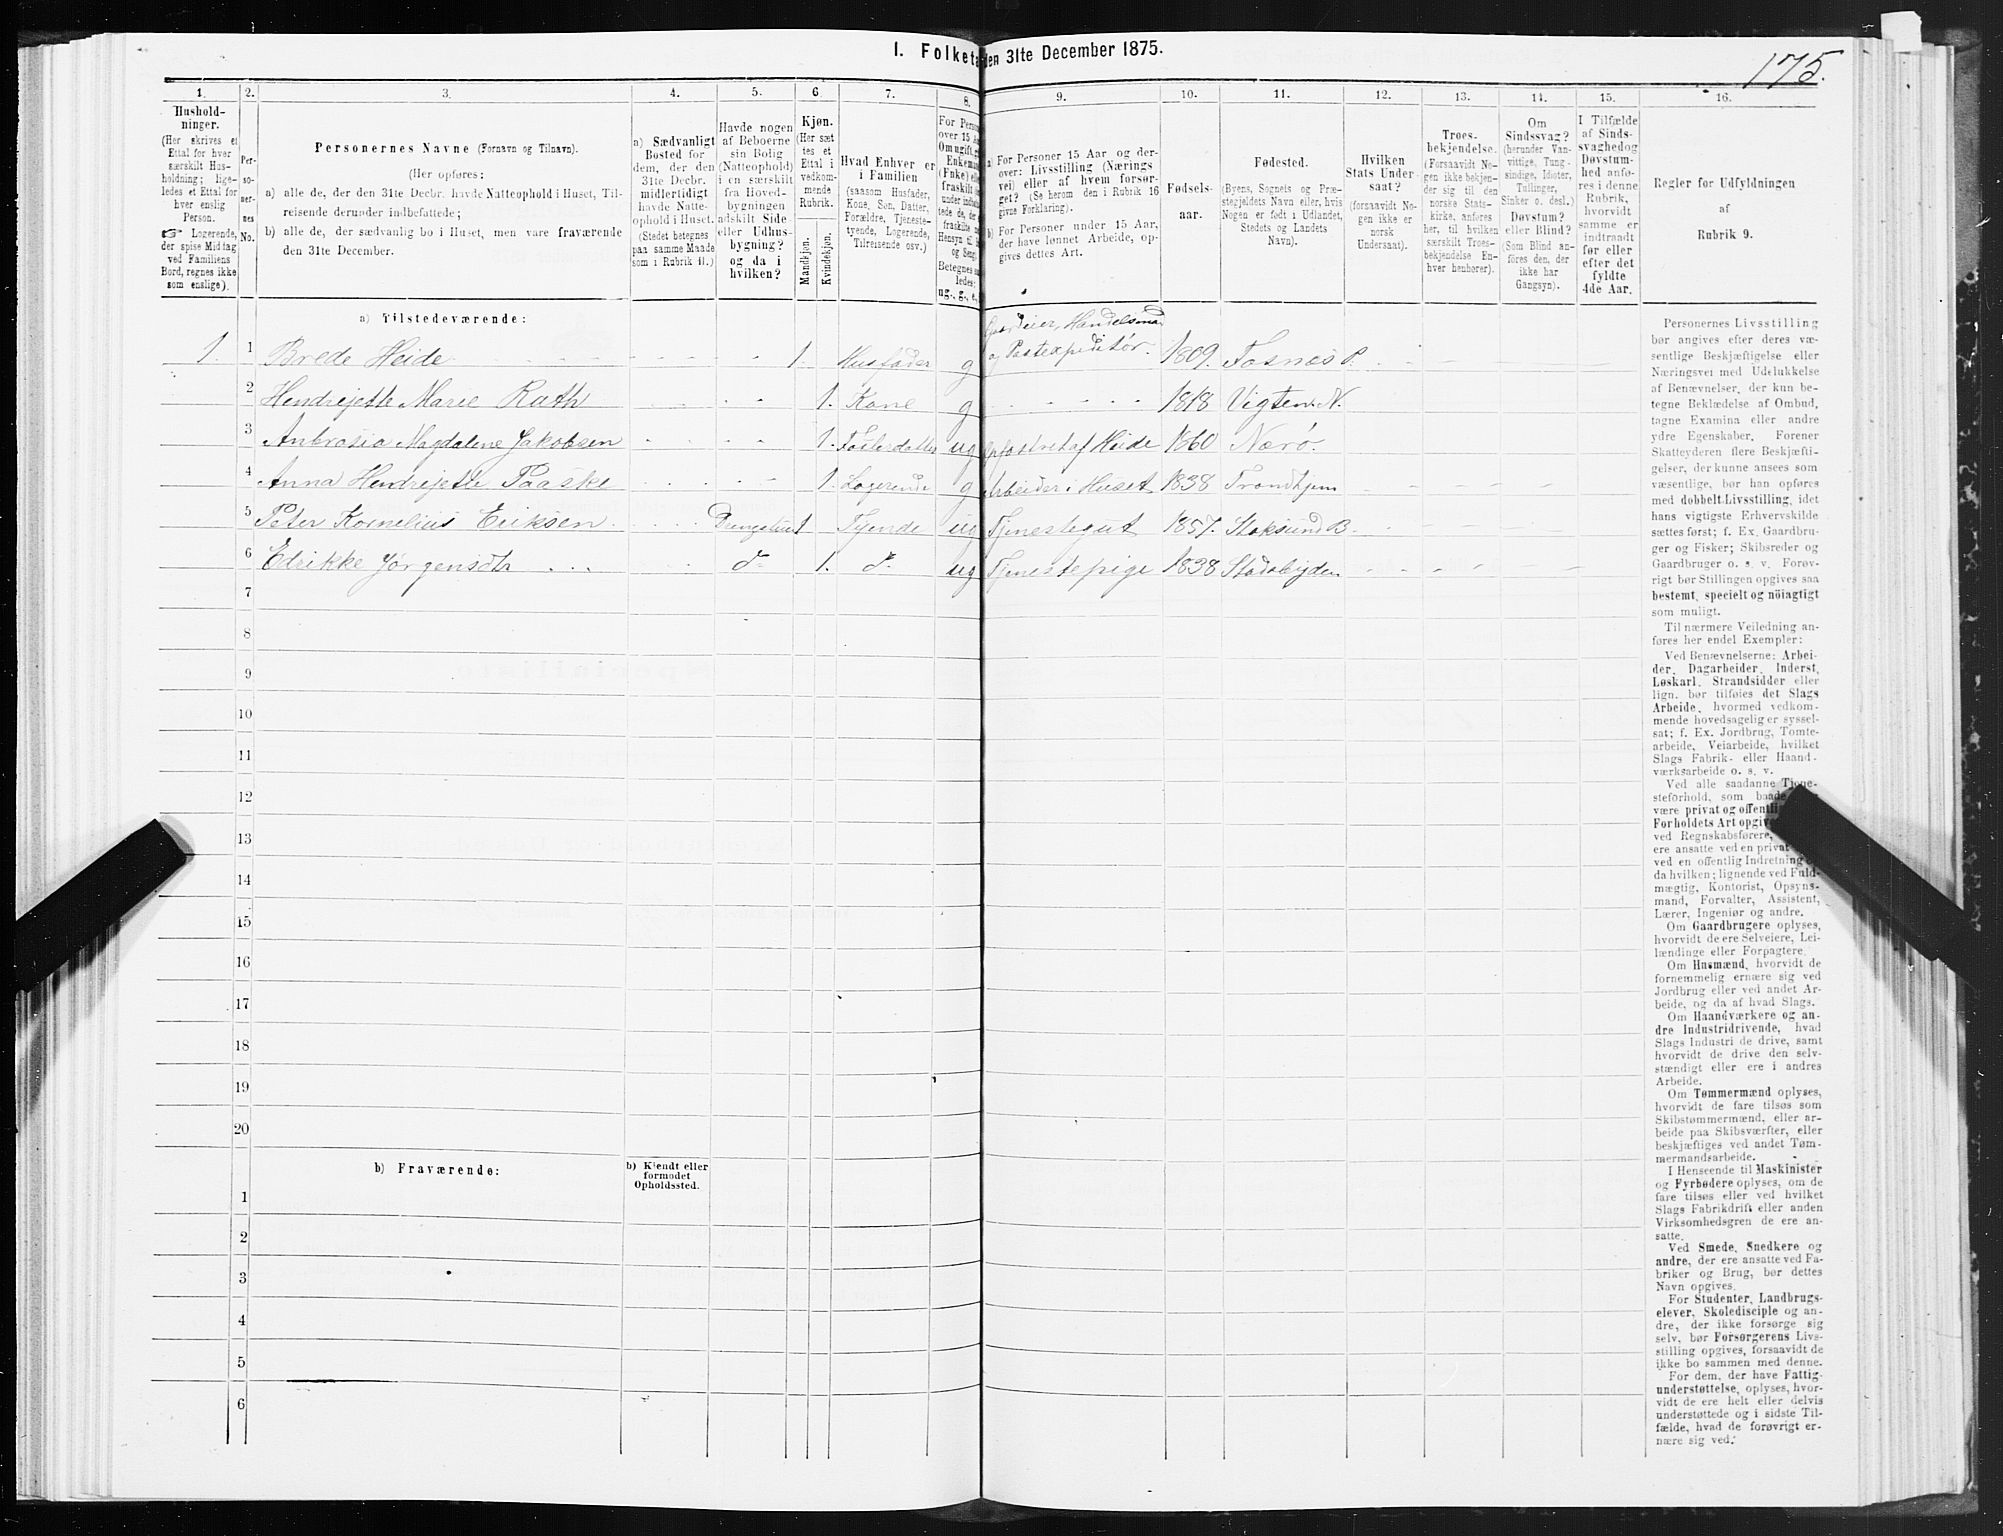 I. Folketæ den 31te December 1875.
175.
1. 2. 3. 4. 5. 6. 7. 8. 9. 10. 11. 12. 13. 14. 15. 16.
Hushold-
ninger.
(Her skrives et
Ettal for hver
særskilt Hus-
holdning; lige-
ledes et Ettal for
hver enslig
Person.
☞ Logerende,
der spise Middag
ved Familiens
Bord, regnes ikke
som enslige).
Per-
so-
ner-
nes
No.
Personernes Navne (Fornavn og Tilnavn).
(Her opføres:
a) alle de, der den 31te Decbr. havde Natteophold i Huset, Til-
reisende derunder indbefattede;
b) alle de, der sædvanlig bo i Huset, men vare fraværende
den 31te December.
a) Sædvanligt
Bosted for
dem, der den
31te Decbr.
midlertidigt
havde Natte-
ophold i Huset.
(Stedet betegnes
paa samme Maade
som i Rubrik 11.)
Havde nogen
af Beboerne
sin Bolig
(Natteophold)
i en særskilt
fra Hoved-
bygningen
adskilt Side-
eller Udhus-
bygning?
og da i
hvilken?
Kjøn.
(Her sæt-
tes et
Ettal i
vedkom-
mende
Rubrik.
Mandkjøn.
Kvindekjøn.
Hvad Enhver er
i Familien
(saasom Husfader,
Kone, Søn, Datter,
Forældre, Tjeneste-
tyende, Logerende,
Tilreisende osv.)
For Person
over 15 Aa
Om ugift, g
Enkeman
(Fnke) ell
fraskilt
ug., g., e.,
a) For Personer 15 Aar og der-
over: Livsstilling (Nærings
vei) eller af hvem forsør-
get? (Se herom den i Rubrik 16
givne Forklaring).
b) For Personer under 15 Aar,
der have lønnet Arbeide, op-
gives dettes Art.
Fødsels-
aar.
Fødested.
(Byens, Sognets og Præ-
stegjeldets Navn eller, hvis
Nogen er født i Udlandet,
Stedets og Landets
Navn).
Hvilken
Stats Under-
saat?
(forsaavidt No-
gen ikke er
norsk
Undersaat).
Troes-
bekjendelse.
(Forsaavidt No-
gen ikke bekjen-
der sig til den
norske Stats-
kirke, anføres
her, til hvilken
særskilt Troes-
bekjendelse En-
hver henhører).
Om
Sindssvag?
(herunder Van-
vittige, Tung-
sindige, Idioter,
Tullinger,
Sinker o. desl.)
Døvstum?
eller Blind?
(Som Blind an-
føres den, der
ikke har
Gangsyn).
I Tilfælde
af Sinds-
svaghed og
Døvstum-
hed anfø-
res i denne
Rubrik,
hvorvidt
samme er
indtraadt
før eller
efter det
fyldte
4de Aar.
Regler for Udfyldningen
af
Rubrik 9.
a) Tilstedeværende:
Gaardeier, Handelsmand
1. 1 Brede Heide 1. Husfader g og Postexpeditør. 1809. Fosnæs P.
2 Hendrejette Marie Rath 1. Kone g 1818 Vigten N.
3 Anbrosia Magdalene Jakobsen 1. Fosterdatter ug Opfostret af Heide 1860 Nærø.
4 Anna Hendrejette Paaske 1. Logerende g Arbeider i Huset 1838 Trondhjem
5 Peter Kornelius Eriksen Drengestue 1 Tjende ug Tjenestegut 1857. Stoksund B.
6 Edrikke Jørgensdtr d- 1. d- ug Tjenestepige 1838 Stadsbygden
7
8
9
10
11
12
13
14
15
16
17
18
19
20
b) Fraværende:
b) Kjendt eller
formodet
Opholdssted.
1
2
3
4
5
6
Personernes Livsstilling
bør angives efter deres væ-
sentlige Beskjæftigelse eller
Næringsvei med Udelukkelse
af Benævnelser, der kun be-
tegne Beklædelse af Ombud,
tagne Examina eller andre
ydre Egenskaber. Forener
Skatteyderen flere Beskjæfti-
gelser, der kunne ansees som
væsentlige, bør han opføres
med dobbelt Livsstilling, idet
hans vigtigste Erhvervskilde
sættes først; f. Ex. Gaardbru-
ger og Fisker; Skibsreder og
Gaardbruger o. s. v. Forøv-
rigt bør Stillingen opgives saa
bestemt, specielt og nöiagtigt
som muligt.
Til nærmere Veiledning an-
føres her endel Exempler:
Ved Benævnelserne: Arbei-
der, Dagarbeider, Inderst,
Løskarl, Strandsidder eller
lign. bør tilføies det Slags
Arbeide, hvormed vedkom-
mende hovedsagelig er syssel-
sat; f. Ex. Jordbrug, Tomte-
arbeide, Veiarbeide, hvilket
Slags Fabrik- eller Haand-
værksarbeide o. s. v.
Ved alle saadanne Tjene-
steforhold, som baade
være privat og offentli
Forholdets Art opgive
ved Regnskabsførere,
ere ansatte ved en privat
ved en offentlig Indretning
da hvilken; lignende ved Fuld-
mægtig, Kontorist, Opsyns-
mand, Forvalter, Assistent,
Lærer, Ingeniør og andre.
Om Gaardbrugere oplyses,
hvorvidt de ere Selveiere, Lei-
lændinge eller Forpagtere.
Om Husmænd, hvorvidt de
fornemmelig ernære sig ved
Jordbrug eller ved andet Ar-
beide, og da af hvad Slags.
Om Haandværkere og an-
dre Industridrivende, hvad
Slags Industri de drive, samt
hvorvidt de drive den selv-
stændigt eller ere i andres
Arbeide.
Om Tømmermænd oplyses,
hvorvidt de fare tilsøs som
Skibstømmermænd, eller ar-
beide paa Skibsværfter, eller
beskjæftiges ved andet Tøm-
mermandsarbeide.
I Henseende til Maskinister
og Fyrbødere oplyses, om de
fare tilsøs eller ved hvilket
Slags Fabrikdrift eller anden
Virksomhedsgren de ere an-
satte.
Ved Smede, Snedkere og
andre, der ere ansatte ved Fa-
briker og Brug, bør dettes
Navn opgives.
For Studenter, Landbrugs-
elever, Skoledisciple og an-
dre, der ikke forsørge sig
selv, bør Forsørgerens Livs-
stilling opgives, forsaavidt de
ikke bo sammen med denne.
For dem, der have Fattig-
understøttelse, oplyses, hvor-
vidt de ere helt eller delvis
understøttede og i sidste Til-
fælde, hvad de forøvrigt er-
nære sig ved.